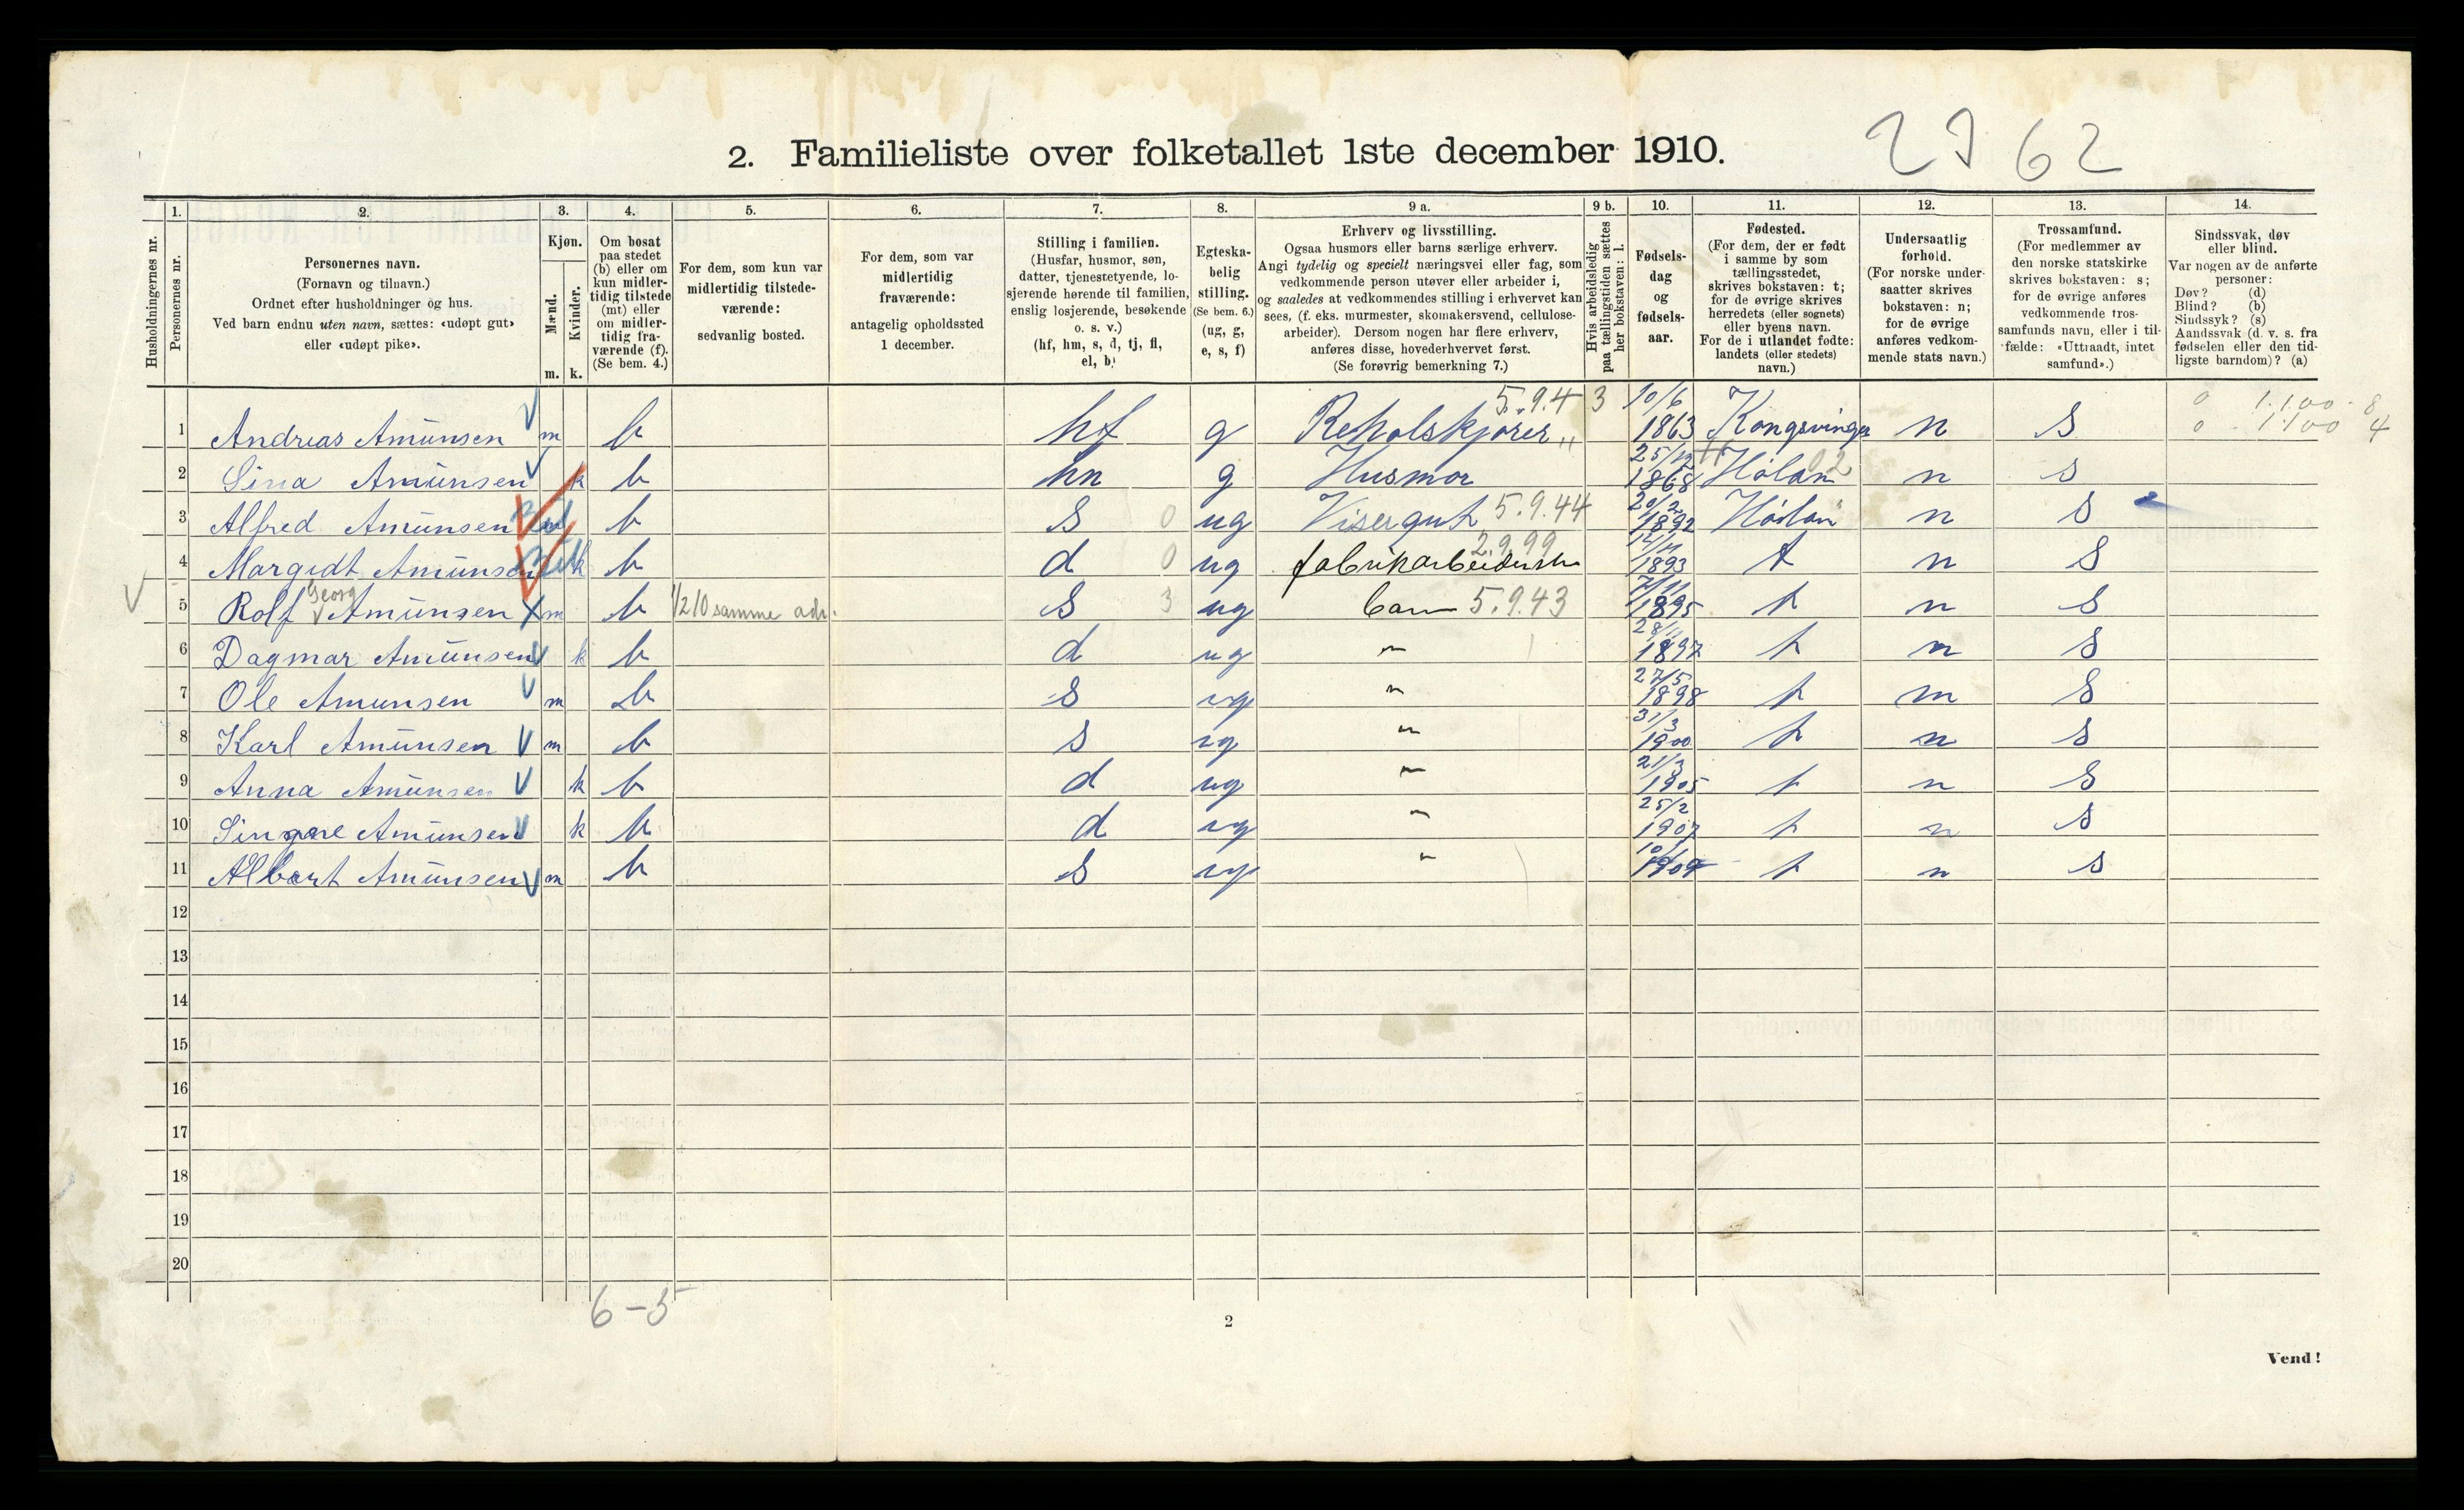 2. Familieliste over folketallet 1ste december 1910.
2762
Husholdningernes nr.
1. Personernes nr.
2. Personernes navn.
(Fornavn og tilnavn.)
Ordnet efter husholdninger og hus.
Ved barn endnu uten navn, sættes: «udøpt gut»
eller «udøpt pike».
3. Kjøn.
Mænd. m.
Kvinder. k.
4. Om bosat
paa stedet
(b) eller om
kun midler-
tidig tilstede
(mt) eller
om midler-
tidig fra-
værende (f).
(Se bem. 4.)
5. For dem, som kun var
midlertidig tilstede-
værende:
sedvanlig bosted.
6. For dem, som var
midlertidig
fraværende:
antagelig opholdssted
1 december.
7. Stilling i familien.
(Husfar, husmor, søn,
datter, tjenestetyende, lo-
sjerende hørende til familien,
enslig losjerende, besøkende
o. s. v.)
(hf, hm, s, d, tj, fl,
el, b)
8. Egteska-
belig
stilling.
(Se bem. 6.)
(ug, g,
e, s, f)
9 a. Erhverv og livsstilling.
Ogsaa husmors eller barns særlige erhverv.
Angi tydelig og specielt næringsvei eller fag, som
vedkommende person utøver eller arbeider i,
og saaledes at vedkommendes stilling i erhvervet kan
sees, (f. eks. murmester, skomakersvend, cellulose-
arbeider). Dersom nogen har flere erhverv,
anføres disse, hovederhvervet først.
(Se forøvrig bemerkning 7.)
9 b. Hvis arbeidsledig
paa tællingstiden sættes
her bokstaven: l.
10. Fødsels-
dag
og
fødsels-
aar.
11. Fødested.
(For dem, der er født
i samme by som
tællingsstedet,
skrives bokstaven: t;
for de øvrige skrives
herredets (eller sognets)
eller byens navn.
For de i utlandet fødte:
landets (eller stedets)
navn.)
12. Undersaatlig
forhold.
(For norske under-
saatter skrives
bokstaven: n;
for de øvrige
anføres vedkom-
mende stats navn.)
13. Trossamfund.
(For medlemmer av
den norske statskirke
skrives bokstaven: s;
for de øvrige anføres
vedkommende tros-
samfunds navn, eller i til-
fælde: «Uttraadt, intet
samfund».)
14. Sindssvak, døv
eller blind.
Var nogen av de anførte
personer:
Døv? (d)
Blind? (b)
Sindssyk? (s)
Aandssvak (d. v. s. fra
fødselen eller den tid-
ligste barndom)? (a)
1 Andrias Amunsen m b hf g Reholskjører 5.9.4 3 10/6 1863 Kongsvinger n s 0 1.100 - 8 0 - 1100 4
2 Sina Amunsen k b hn g Husmor 25/12 1868 Høland 02 n s
3 Alfred Amunsen m b s 0 ug Visergut 5.9.44 20/2 1892 n s
4 Margidt Amunsen k b d 0 ug fabrikarbeiderske 2.9.99 1893 t n s
5 Rolf Georg Amunsen m b 1/2 10 samme adr. s 3 ug barn 5.9.43 7/11 1895 t n s
6 Dagmar Amunsen k b d ug " 28/11 1897 t n s
7 Ole Amunsen m b s ug " 27/5 1898 t n s
8 Karl Amunsen m b s ug " 31/3 1900 t n s
9 Anna Amunsen k b d ug " 21/3 1905 t n s
10 Amunsen k b d ug " 25/2 1907 t n s
11 Albert Amunsen m b s ug " 10/1 1909 t n s
12
13
14
15
16
17
18
19
20
6-5
2
Vend!